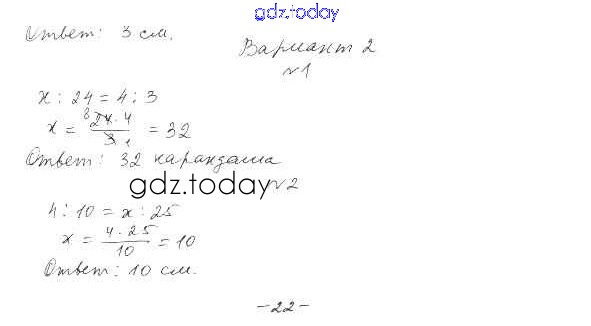 gdz.today
Ответ: 3 см.
Вариант 2
№1
x : 24 = 4 : 3
x = 8 24·4 / 3 1 = 32
Ответ: 32 карандаша
gdz.today
№2
4 : 10 = x : 25
x = 4·25 / 10 = 10
Ответ: 10 см.
-22-